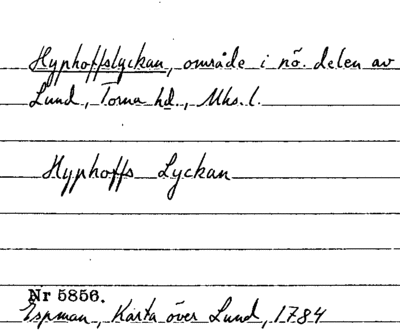 Hyphoffslyckan, område i nö. delen av
Lund, Torna hd., Mhs. l.
Hyphoffs Lyckan
Nr 5856.
Espman, Karta över Lund, 1784